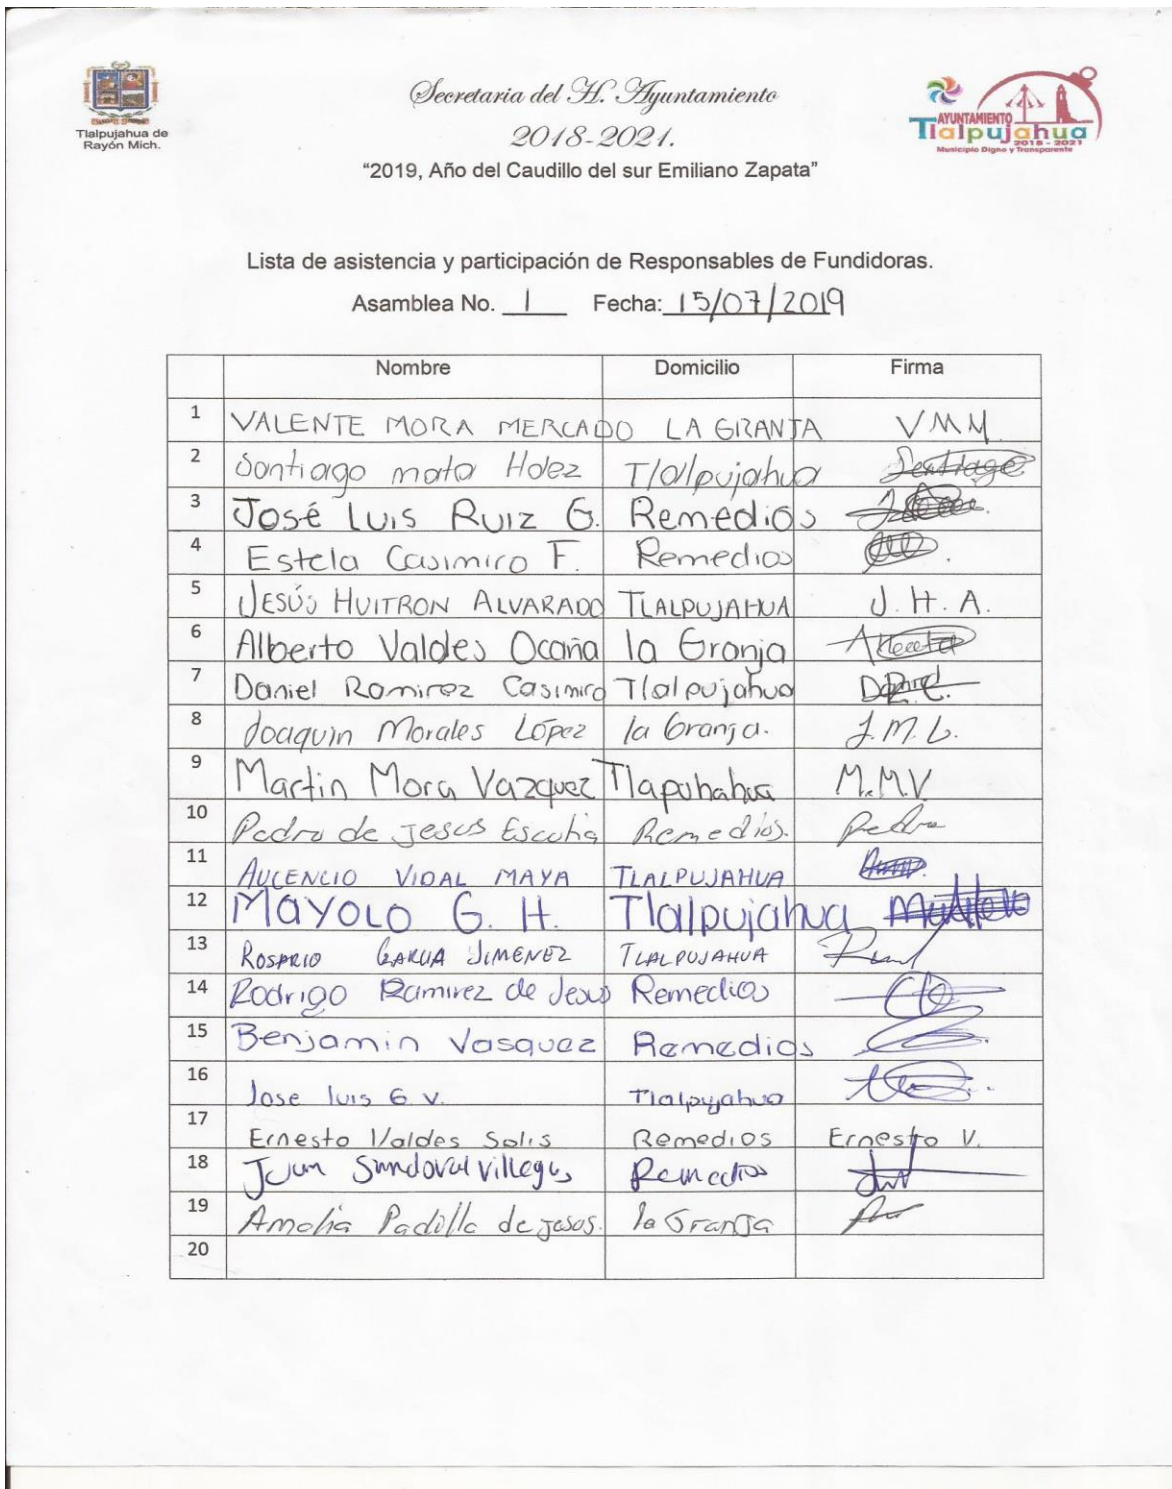 Tlalpujahua de
Rayón Mich.
Secretaria del H. Ayuntamiento
2018-2021.
“2019, Año del Caudillo del sur Emiliano Zapata”
AYUNTAMIENTO
Tlalpujahua
2018 - 2021
Municipio Digno y Transparente
Lista de asistencia y participación de Responsables de Fundidoras.
Asamblea No. 1 Fecha: 15/07/2019
Nombre Domicilio Firma
1 VALENTE MORA MERCADO LA GRANJA VMM
2 Santiago mata Hdez Tlalpujahua Santiago
3 José Luis Ruiz G. Remedios
4 Estela Casimiro F. Remedios
5 JESÚS HUITRON ALVARADO TLALPUJAHUA J. H. A.
6 Alberto Valdes Ocaña la Granja
7 Daniel Ramirez Casimiro Tlalpujahua
8 Joaquin Morales López la Granja. J.M.L.
9 Martin Mora Vazquez Tlapuhahua M.M.V
10 Pedro de jesus Escutia Remedios. Pedro
11 AUCENCIO VIDAL MAYA TLALPUJAHUA
12 MAYOLO G. H. Tlalpujahua
13 ROSARIO GARCIA JIMENEZ TLALPUJAHUA
14 Rodrigo Ramirez de Jesus Remedios
15 Benjamin Vasquez Remedios
16 Jose luis G V. Tlalpujahua
17 Ernesto Valdes Solis Remedios Ernesto V.
18 Juan Sandoval villegas Remedios
19 Amelia Padilla de jesus. la Granja
20